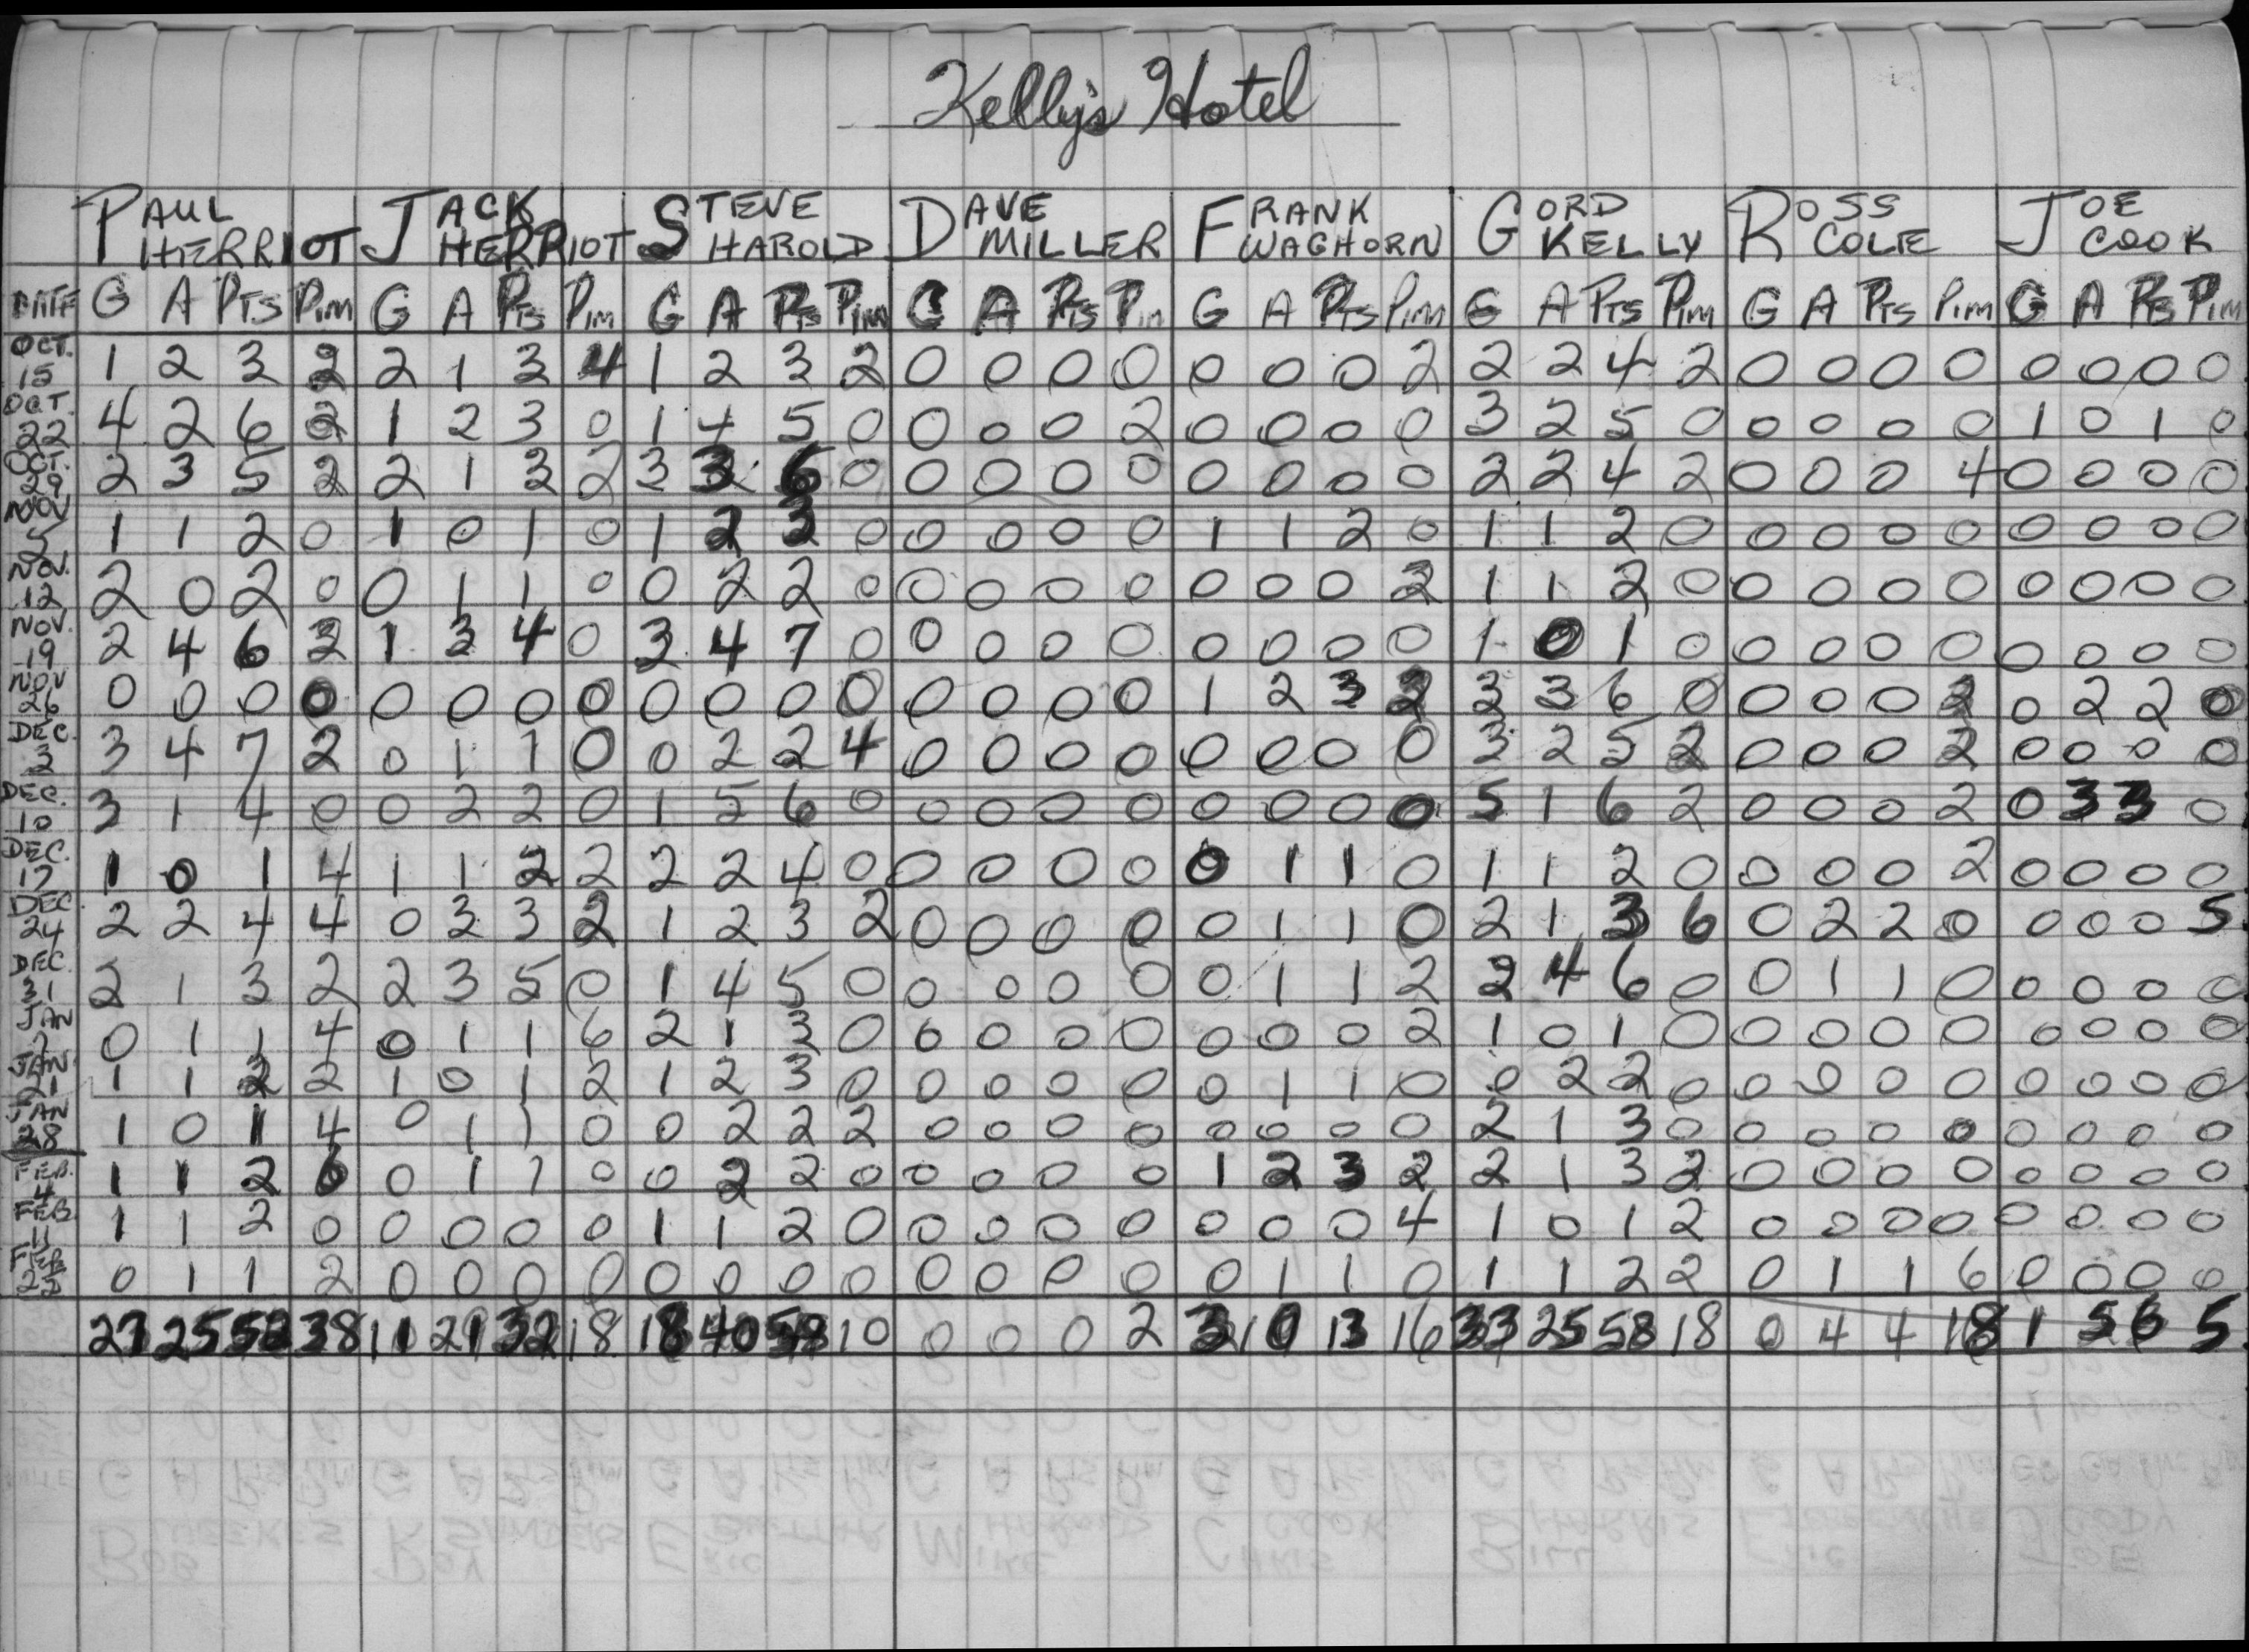 Kelly's Hotel
PAUL HERRIOT JACK HERRIOT STEVE HAROLD DAVE MILLER FRANK WAGHORN GORD KELLY ROSS COLE JOE COOK
DATE G A PTS PIM G A PTS PIM G A PTS PIM G A PTS PIM G A PTS PIM G A PTS PIM G A PTS PIM G A PTS PIM
OCT. 15 1 2 3 2 2 1 3 4 1 2 3 2 0 0 0 0 0 0 0 2 2 2 4 2 0 0 0 0 0 0 0 0
OCT. 22 4 2 6 2 1 2 3 0 1 4 5 0 0 0 0 2 0 0 0 0 3 2 5 0 0 0 0 0 1 0 1 0
OCT. 29 2 3 5 2 2 1 3 2 3 3 6 0 0 0 0 0 0 0 0 0 2 2 4 2 0 0 0 4 0 0 0 0
NOV 5 1 1 2 0 1 0 1 0 1 2 3 0 0 0 0 0 1 1 2 0 1 1 2 0 0 0 0 0 0 0 0 0
NOV. 12 2 0 2 0 0 1 1 0 0 2 2 0 0 0 0 0 0 0 0 2 1 1 2 0 0 0 0 0 0 0 0 0
NOV. 19 2 4 6 2 1 3 4 0 3 4 7 0 0 0 0 0 0 0 0 0 1 0 1 0 0 0 0 0 0 0 0 0
NOV 26 0 0 0 0 0 0 0 0 0 0 0 0 0 0 0 0 1 2 3 2 3 3 6 0 0 0 0 2 0 2 2 0
DEC. 3 3 4 7 2 0 1 1 0 0 2 2 4 0 0 0 0 0 0 0 0 3 2 5 2 0 0 0 2 0 0 0 0
DEC. 10 3 1 4 0 0 2 2 0 1 5 6 0 0 0 0 0 0 0 0 0 5 1 6 2 0 0 0 2 0 3 3 0
DEC. 17 1 0 1 4 1 1 2 2 2 2 4 0 0 0 0 0 0 1 1 0 1 1 2 0 0 0 0 2 0 0 0 0
DEC 24 2 2 4 4 0 3 3 2 1 2 3 2 0 0 0 0 0 1 1 0 2 1 3 6 0 2 2 0 0 0 0 5
DEC. 31 2 1 3 2 2 3 5 0 1 4 5 0 0 0 0 0 0 1 1 2 2 4 6 0 0 1 1 0 0 0 0 0
JAN 7 0 1 1 4 0 1 1 6 2 1 3 0 0 0 0 0 0 0 0 2 1 0 1 0 0 0 0 0 0 0 0 0
JAN 21 1 1 2 2 1 0 1 2 1 2 3 0 0 0 0 0 0 1 1 0 0 2 2 0 0 0 0 0 0 0 0 0
JAN 28 1 0 1 4 0 1 1 0 0 2 2 2 0 0 0 0 0 0 0 0 2 1 3 0 0 0 0 0 0 0 0 0
FEB. 4 1 1 2 6 0 1 1 0 0 2 2 0 0 0 0 0 1 2 3 2 2 1 3 2 0 0 0 0 0 0 0 0
FEB 11 1 1 2 0 0 0 0 0 1 1 2 0 0 0 0 0 0 0 0 4 1 0 1 2 0 0 0 0 0 0 0 0
FEB 0 1 1 2 0 0 0 0 0 0 0 0 0 0 0 0 0 1 1 0 1 1 2 2 0 1 1 6 0 0 0 0
27 25 52 38 11 21 32 18 18 40 58 10 0 0 0 2 3 10 13 16 33 25 58 18 0 4 4 18 1 5 6 5